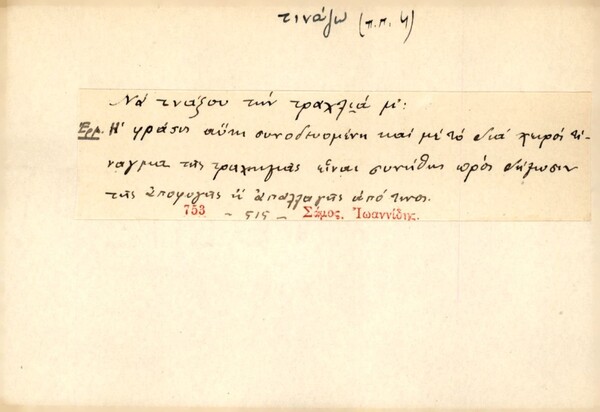 τινάζω (π.π. 4)
Νά τινάξου τήν τραχηλιά μ':
Ἑρμ. Ἡ φράσις αὕτη συνοδευομένη καί μέ τό διά χειρός τί-
ναγμα τῆς τραχηλιᾶς εἶναι συνήθης πρός δήλωσιν
τῆς ἀποφυγῆς ἤ ἀπαλλαγῆς ἀπό τινος.
753 - 515 - Σάμος, Ἰωαννίδης.